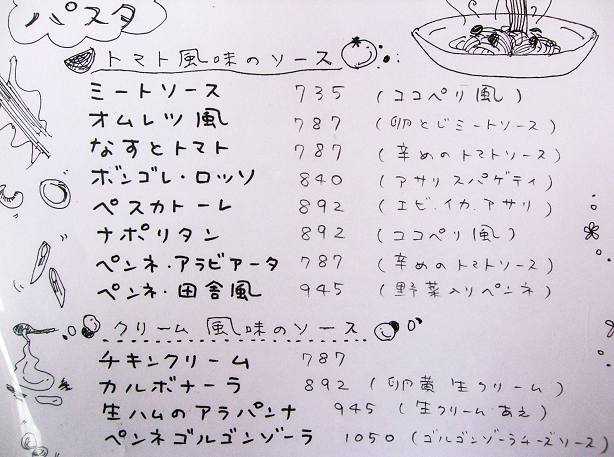 パスタ
トマト風味のソース
ミートソース 735 (ココペリ風)
オムレツ風 787 (卵とじミートソース)
なすとトマト 787 (辛めのトマトソース)
ボンゴレ・ロッソ 840 (アサリスパゲティ)
ペスカトーレ 892 (エビ.イカ.アサリ)
ナポリタン 892 (ココペリ風)
ペンネ・アラビアータ 787 (辛めのトマトソース)
ペンネ・田舎風 945 (野菜入りペンネ)
クリーム風味のソース
チキンクリーム 787
カルボナーラ 892 (卵黄生クリーム)
生ハムのアラパンナ 945 (生クリームあえ)
ペンネゴルゴンゾーラ 1050 (ゴルゴンゾーラチーズソース)